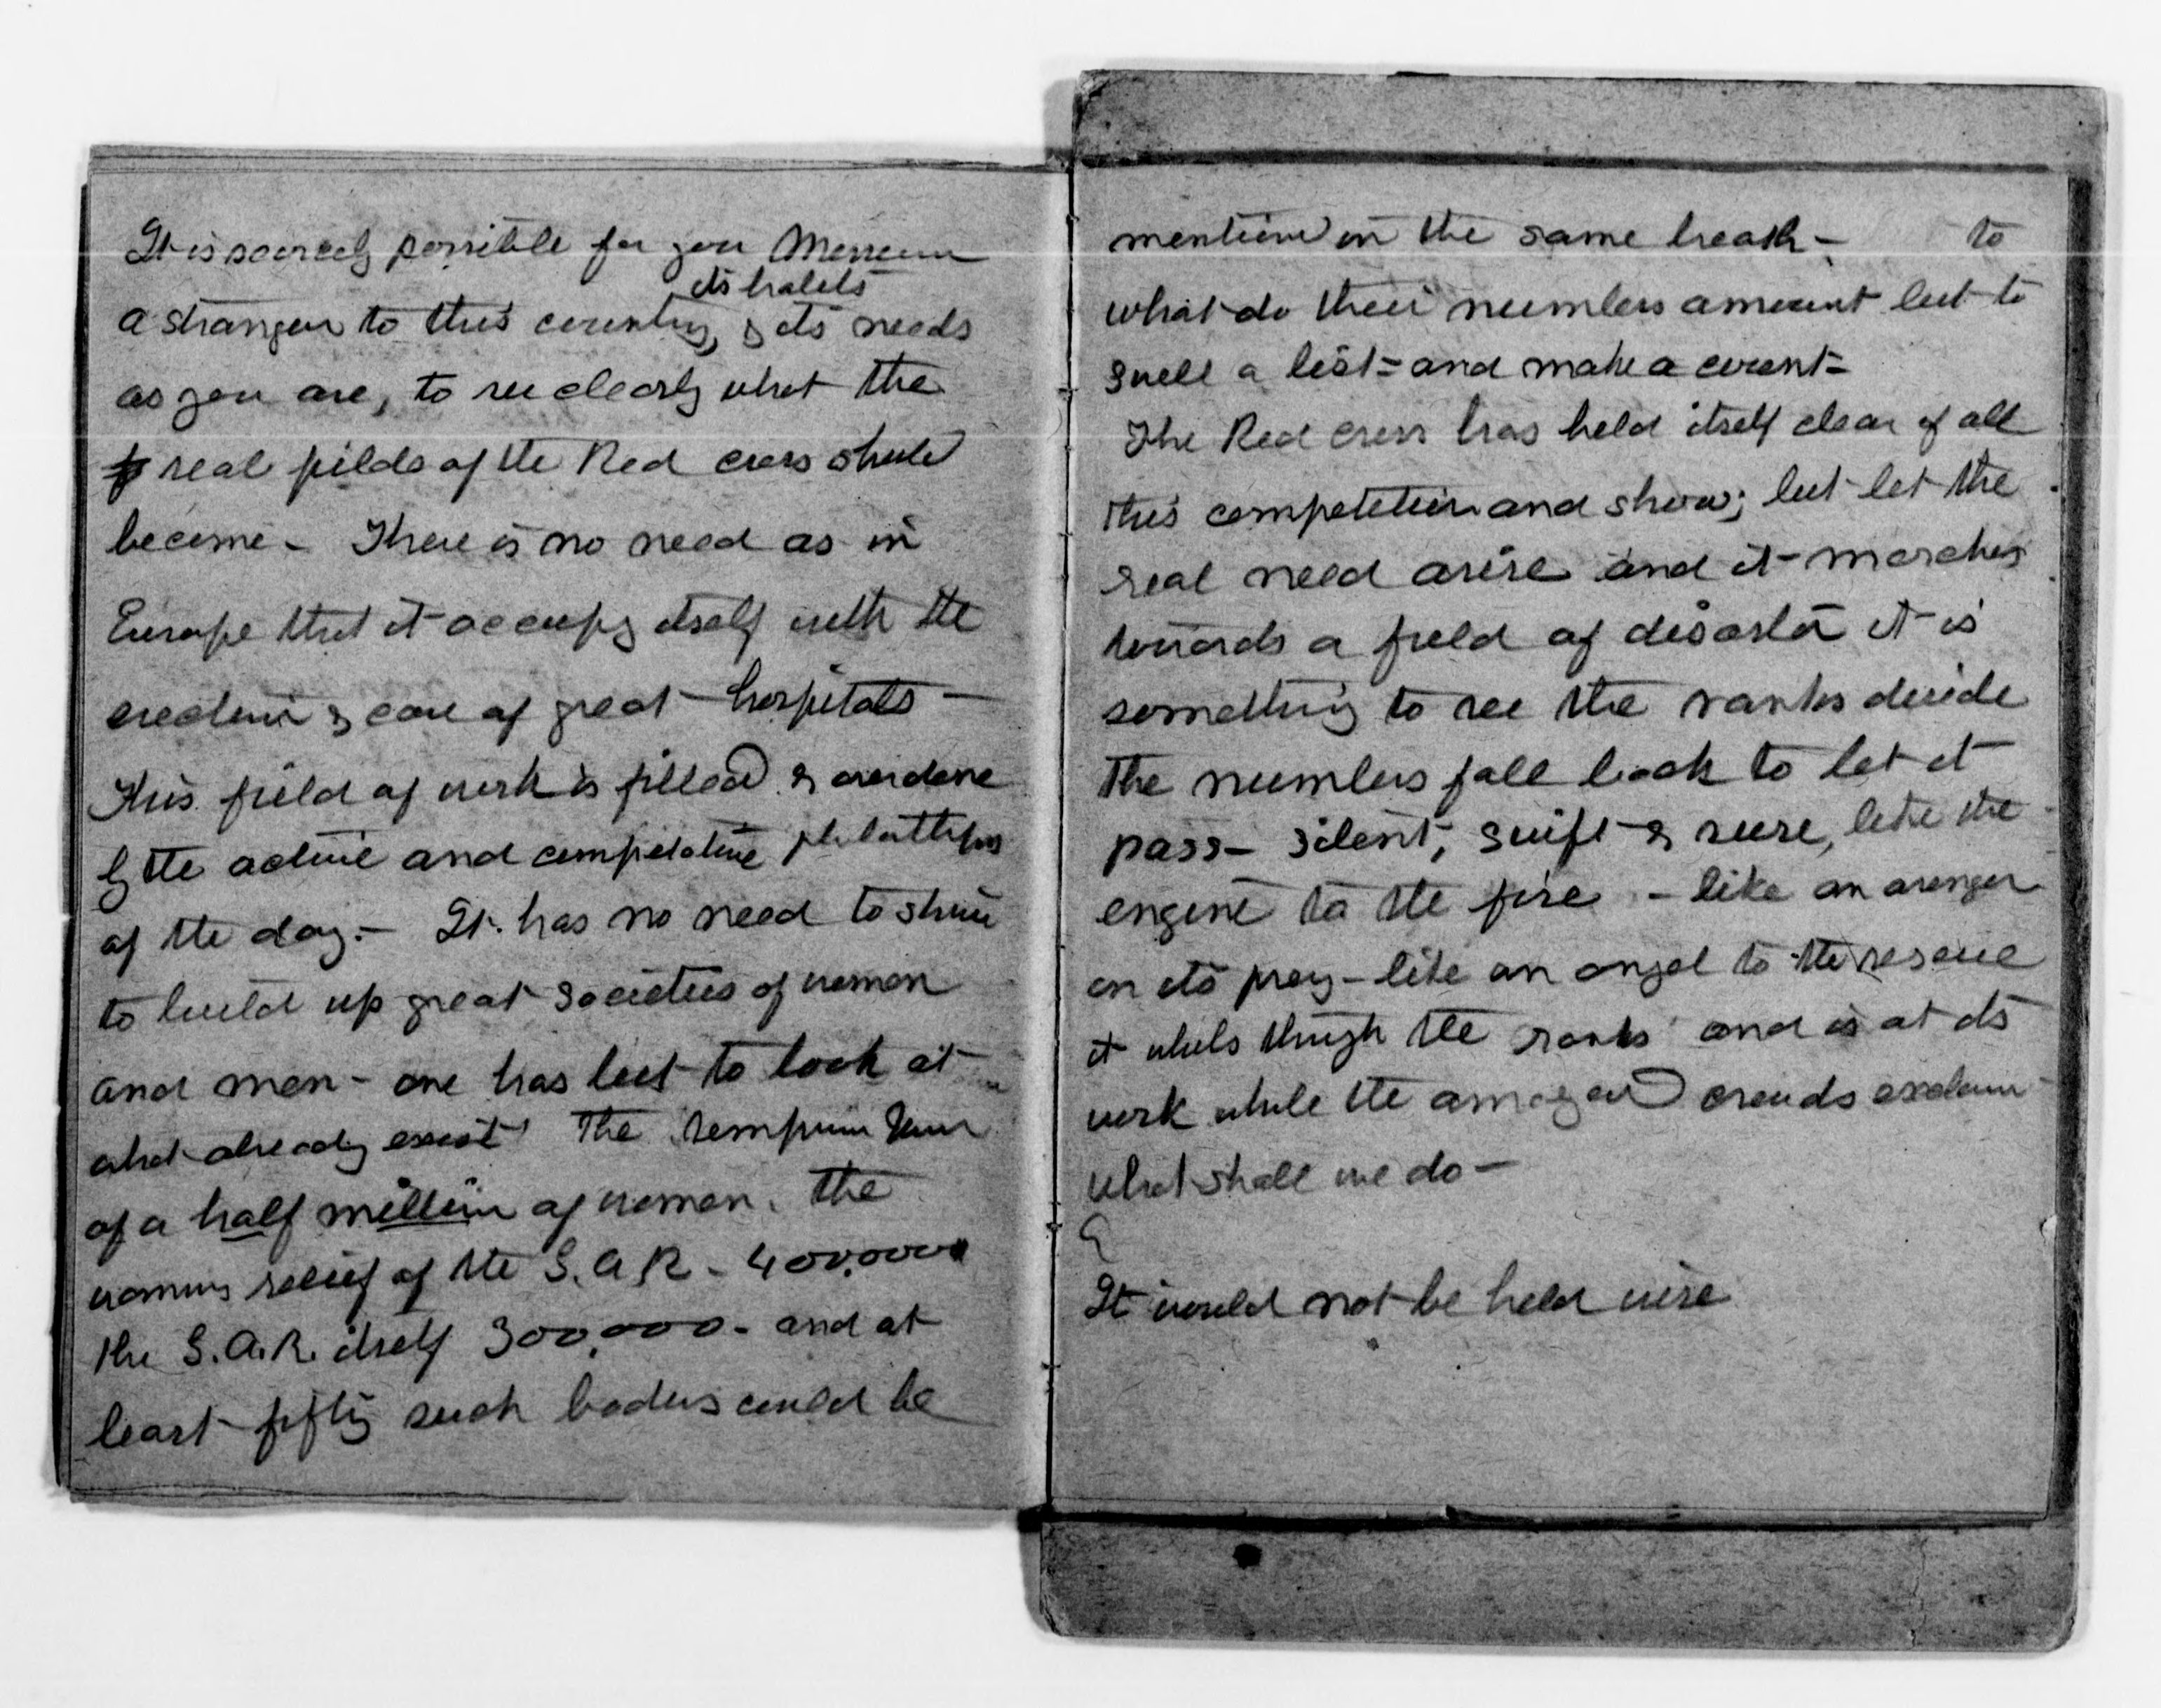 It is scarcely possible for you Monsieur
its habits
a stranger to this country, & its needs
as you are, to see clearly what the
real fields of the Red cross should
become - There is no need as in
Europe that it occupy itself with the
erection & care of great hospitals -
This field of work is filled & overdone
by the active and competative
of the day. - It has no need to strive
to build up great societies of women
and men - one has but to look at
what already exist The
of a half million of women. The
womens relief of the G.A.R. - 400,000
the G.A.R. itself 300,000 - and at
least fifty such bodies could be
mention in the same breath - to
what do their numbers amount but to
swell a list - and make a count -
The Red cross has held itself clear of all
this competition and show; but let the
real need arise and it marches
towards a field of disaster it is
something to see the ranks divide
The numbers fall back to let it
pass - silent, swift & sure, like the
engine to the fire - like an avenger
on its prey - like an angel to the rescue
it whels through the ranks and is at its
work while the amazed crouds exclaim
what shall we do -
It would not be held wise